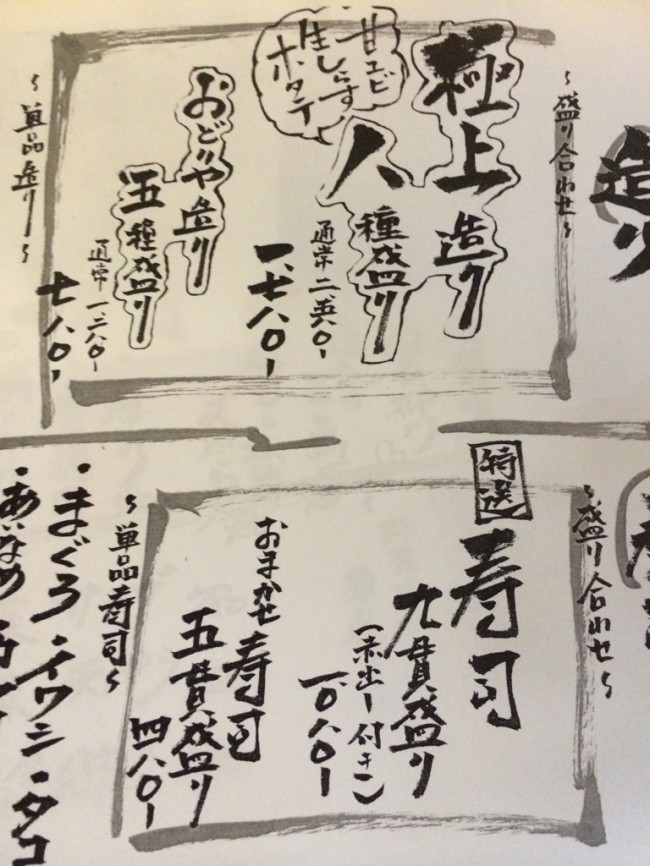 造り
〜盛り合わせ〜
極上造り
八種盛り
甘エビ
生しらす
ホタテ
通常二、五八〇ー
一、七八〇ー
おどりや造り
五種盛り
通常一、二八〇ー
七八〇ー
〜単品造り〜
〜盛り合わせ〜
特選
寿司
九貫盛り
(赤出し付き)
一、〇八〇ー
おまかせ寿司
五貫盛り
四八〇ー
〜単品寿司〜
・まぐろ・イワシ・タコ
・あいなめ